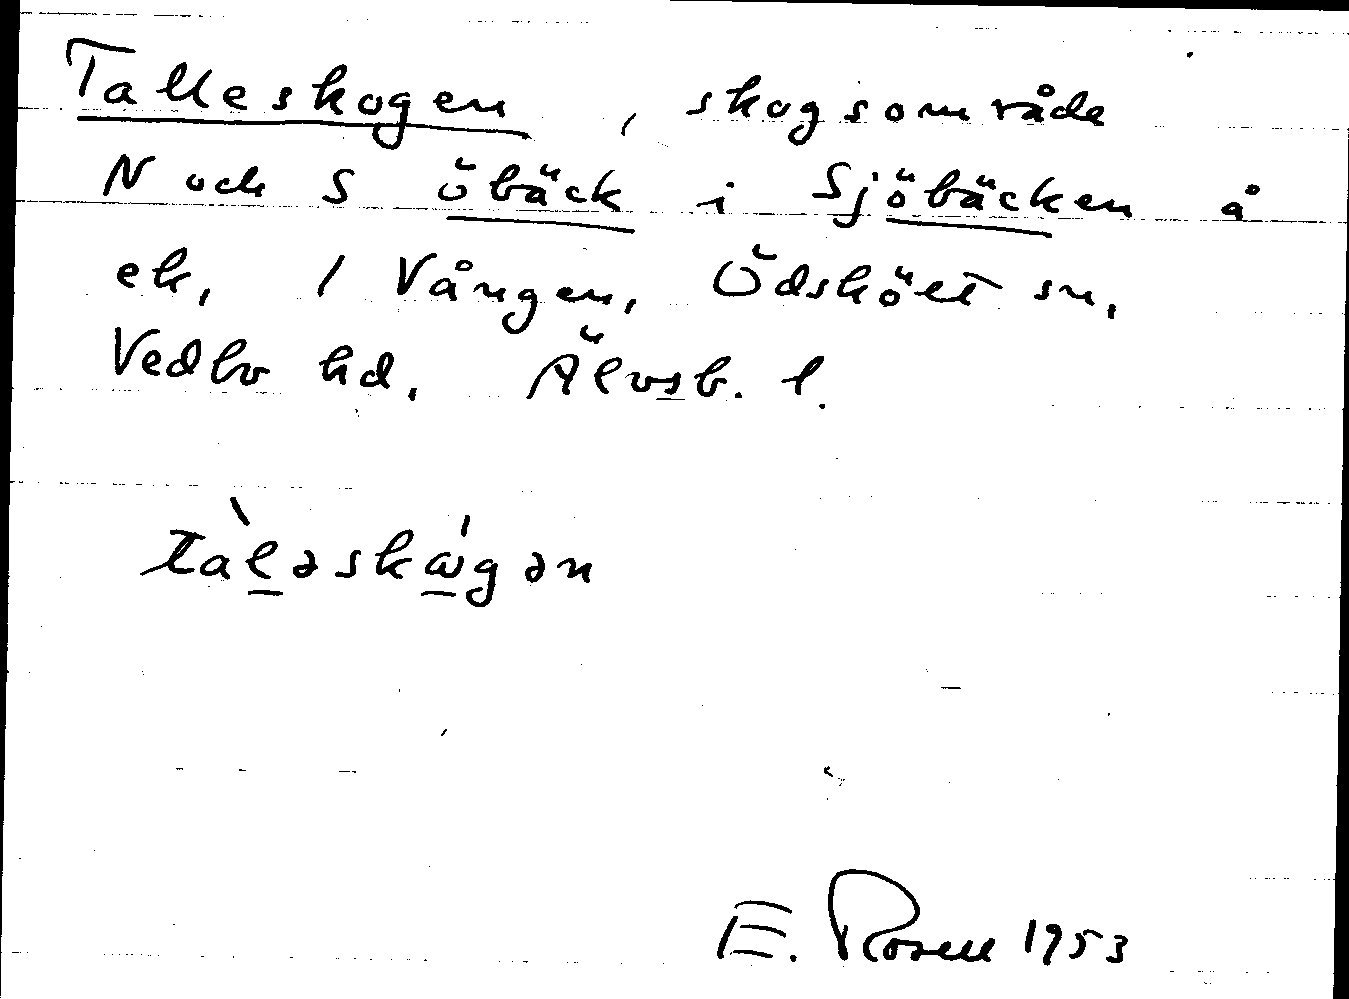 Talleskogen, skogsområde
N och S öbäck i Sjöbäcken å
ek, 1 Vången, Ödskölt sn,
Vedbo hd, Älvsb. l.
tàl̲əskώ̲gən
E. Rosell 1953